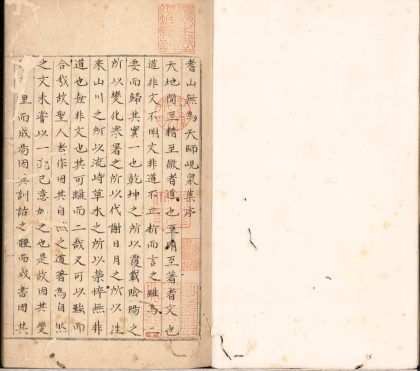 耆山無為天師峴泉集序
天地間至精至微者道也至明至著者文也
道非文不明文非道不立析而言之雖為二
要而歸其實一也乾坤之所以覆載陰陽之
所以變化寒暑之所以代謝日月之所以徃
來山川之所以流峙草木之所以榮悴無非
道也無非文也其可離而二哉又可以強而
合哉故聖人者作因其自然之道著為自然
之文未嘗以一毫己意加之也是故因其變
里而成易因其訓誥之體而成書因其